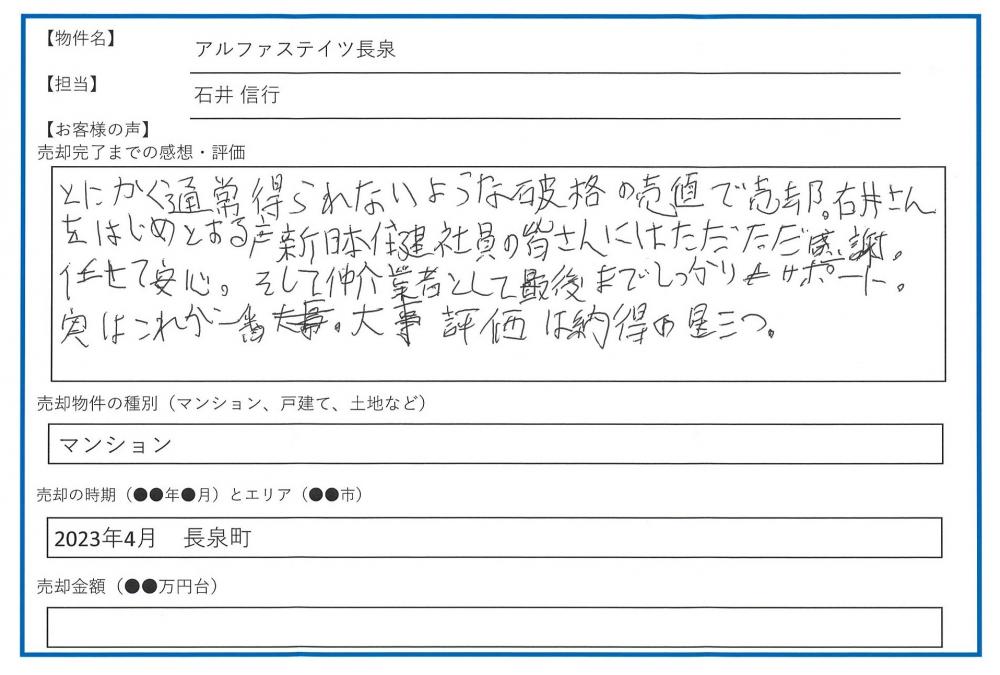 【物件名】
アルファステイツ長泉
【担当】
石井 信行
【お客様の声】
売却完了までの感想・評価
とにかく通常得られないような破格の売値で売却。石井さん
をはじめとする 新日本住建社員の皆さんにはただただ感謝。
任せて安心。そして仲介業者として最後までしっかりサポート。
実はこれが一番 大事 評価は納得の星三つ。
売却物件の種別（マンション、戸建て、土地など）
マンション
売却の時期（●●年●月）とエリア（●●市）
2023年4月　長泉町
売却金額（●●万円台）